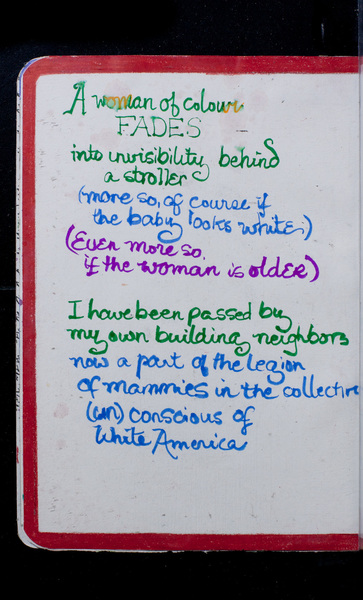 A woman of colour
FADES
into invisibility behind
a stroller
(more so, of course if
the baby looks white.)
(Even more so,
if the woman is oldER)
I have been passed by
my own building neighbors
now a part of the legion
of mammies in the collective
(un) conscious of
White America